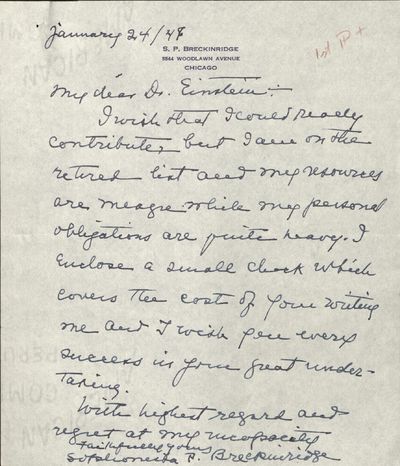 january 24/47
S. P. BRECKINRIDGE
5544 WOODLAWN AVENUE
CHICAGO
My dear Dr. Einstein:
I wish that I could really
contribute, but I am on the
retired list and my resources
are meagre while my personal
obligations are quite heavy. I
enclose a small check which
covers the cost of your writing
me and I wish you every
success in your great under-
taking.
With highest regard and
regret at my incapacity
Faithfully yours
Sophonisba P. Breckinridge